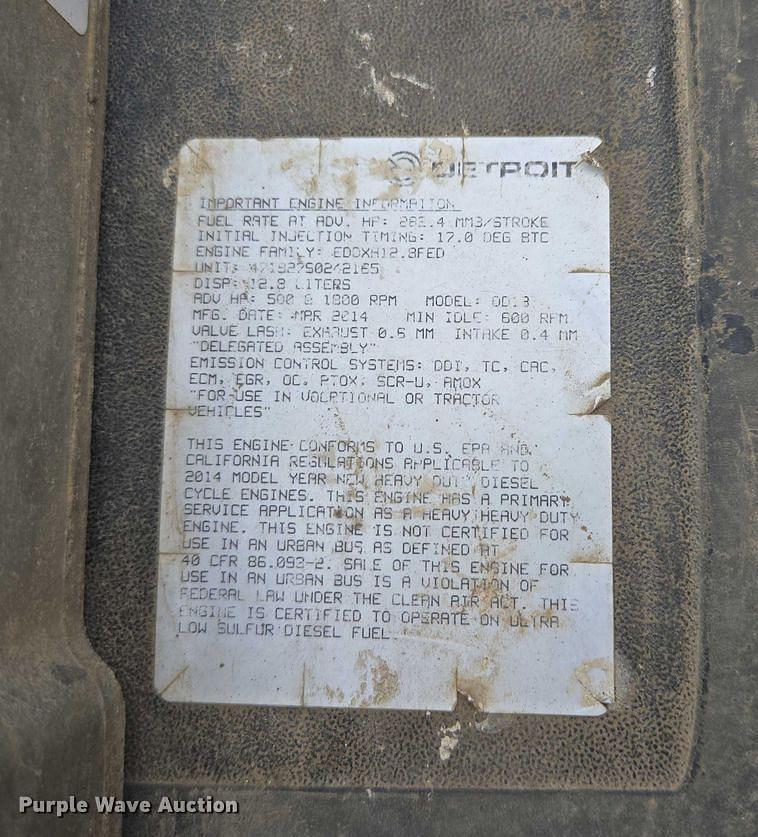 DETROIT
IMPORTANT ENGINE INFORMATION
FUEL RATE AT ADV. HP: 282.4 MM3/STROKE
INITIAL INJECTION TIMING: 17.0 DEG BTC
ENGINE FAMILY: EDDXH12.8FED
UNIT:
DISP: 12.8 LITERS
ADV HP: 500 @ 1800 RPM MODEL: DD13
MFG. DATE: MAR 2014 MIN IDLE: 600 RPM
VALUE LASH: EXHAUST 0.6 MM INTAKE 0.4 MM
"DELEGATED ASSEMBLY"
EMISSION CONTROL SYSTEMS: DDI, TC, CAC,
ECM, EGR, OC, PTOX, SCR-U, AMOX
"FOR USE IN VOCATIONAL OR TRACTOR
VEHICLES"
THIS ENGINE CONFORMS TO U.S. EPA AND
CALIFORNIA REGULATIONS APPLICABLE TO
2014 MODEL YEAR NEW HEAVY DUTY DIESEL
CYCLE ENGINES. THIS ENGINE HAS A PRIMARY
SERVICE APPLICATION AS A HEAVY HEAVY DUTY
ENGINE. THIS ENGINE IS NOT CERTIFIED FOR
USE IN AN URBAN BUS AS DEFINED AT
40 CFR 86.093-2. SALE OF THIS ENGINE FOR
USE IN AN URBAN BUS IS A VIOLATION OF
FEDERAL LAW UNDER THE CLEAN AIR ACT. THIS
ENGINE IS CERTIFIED TO OPERATE ON ULTRA
LOW SULFUR DIESEL FUEL.
Purple Wave Auction